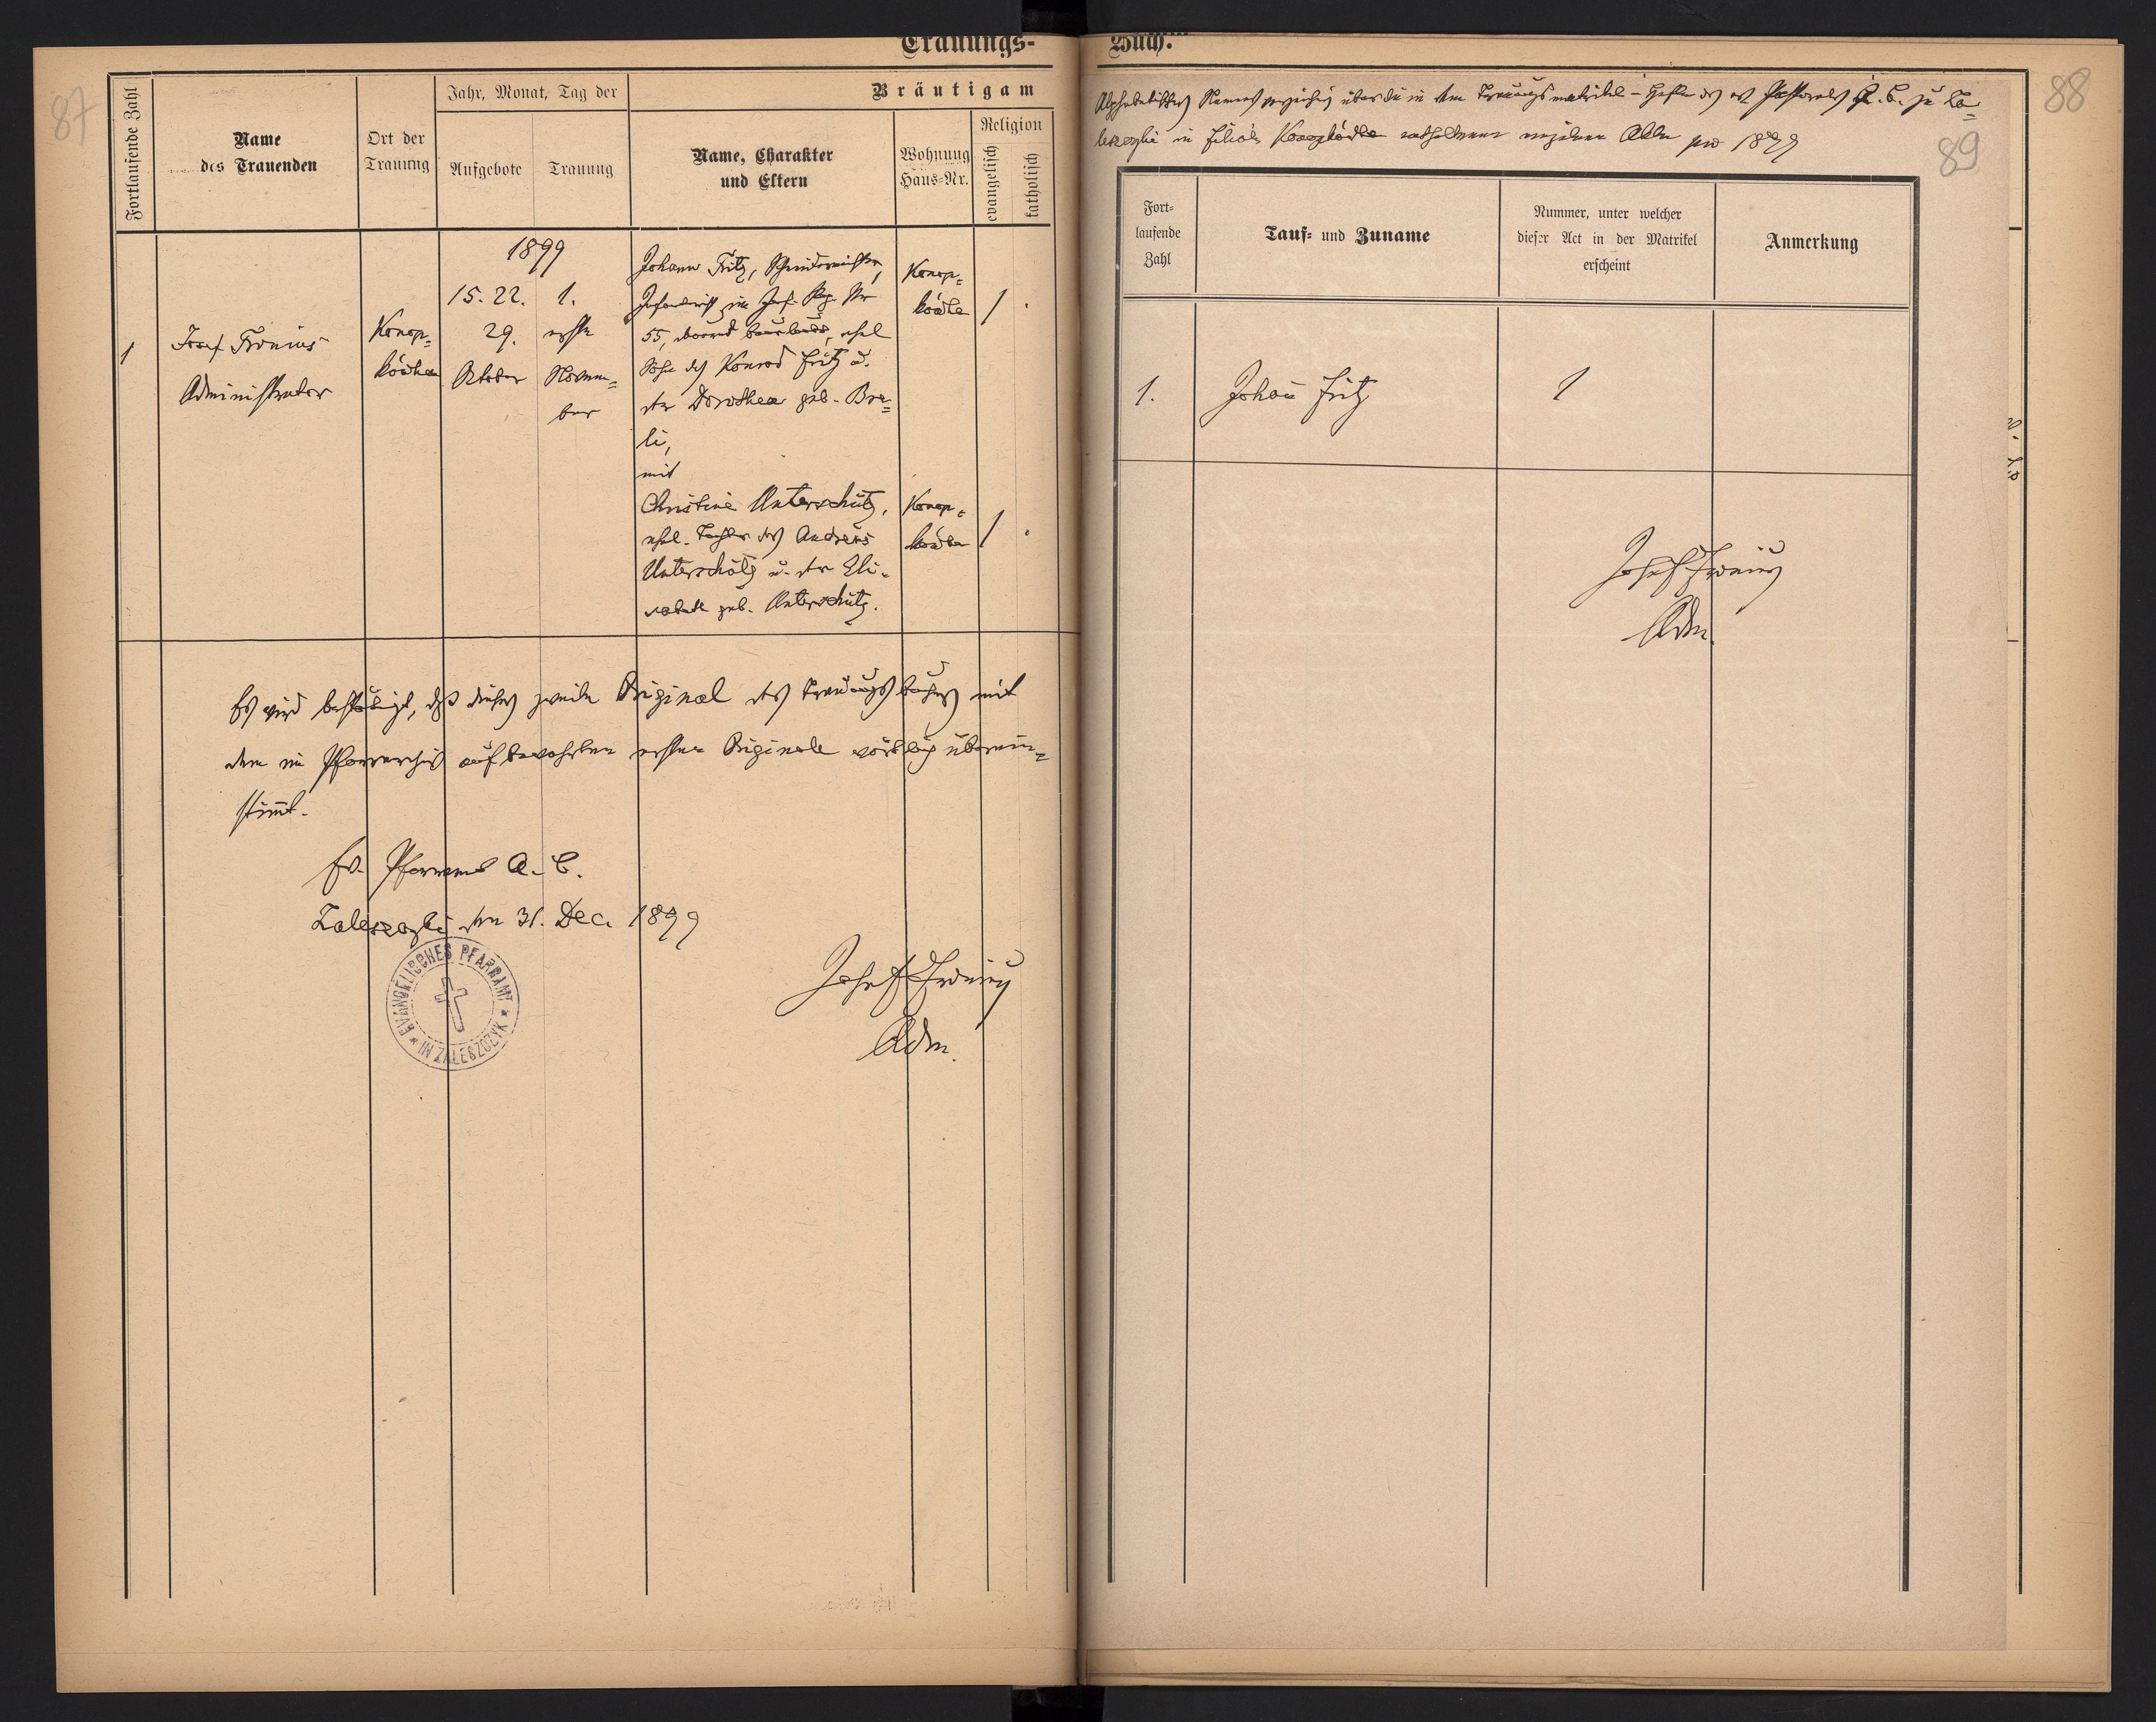 Trauungs-
Buch.
87
Fortlaufende Zahl
Name
des Trauenden
Ort der
Trauung
Jahr, Monat, Tag der
Aufgebote
Trauung
Bräutigam
Name, Charakter
und Eltern
Wohnung
Haus-Nr.
Religion
evangelisch
katholisch
1
Josef Fronius
Administrator
Konop=
kówka
1899
15. 22.
29.
Oktober
1.
erste
Novem=
ber
Johann Fritz, Schneidermeister,
Infanterist im Inf. Reg. Nr
55, ehel
Sohn des Konrad Fritz u.
der Dorothea geb. Bre=
li,
mit
Christine Unterschütz,
ehel. Tochter des Andreas
Unterschütz u. der Eli-
sabeth geb. Unterschütz.
Konop=
kówka
1 .
Konop=
kówka
1 .
Es wird bestätigt, daß dieses zweite Original des Trauungsbuches mit
dem im Pfarrarchiv aufbewahrten ersten Originale wörtlich überein=
stimmt.
Ev. Pfarramt A. C.
Zaleszczyki den 31. Dec. 1899
EVANGELISCHES PFARRAMT
* IN ZALESZCZYK *
Josef Fronius
Adm.
88
89
Alphabetisches Namensverzeichnis über die in dem Trauungsmatrikel-Hefte des ev. Pastorales A. C. zu Za=
leszczyki in Filiale Konopkówka enthaltenen einzelnen Akte pro 1899
Fort-
laufende
Zahl
Tauf- und Zuname
Nummer, unter welcher
dieser Act in der Matrikel
erscheint
Anmerkung
1.
Johañ Fritz
1
Josef Fronius
Adm.